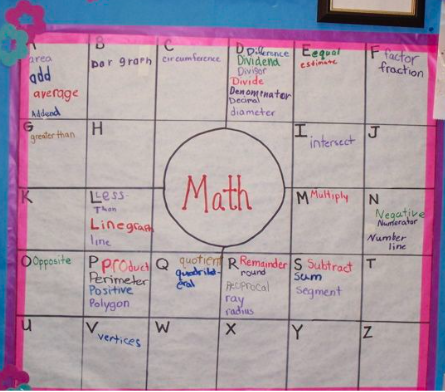 A
area
add
average
Addend
B
bar graph
C
circumference
D Difference
Dividend
Divisor
Divide
Denominator
Decimal
diameter
E equal
estimate
F factor
fraction
G
greater than
H
I
intersect
J
Math
K
Less
Than
Line graph
line
M Multiply
N
Negative
Numerator
Number
line
O Opposite
P Product
Perimeter
Positive
Polygon
Q quotient
quadrilat-
eral
R Remainder
round
Reciprocal
ray
radius
S Subtract
Sum
Segment
T
U
V
vertices
W
X
Y
Z